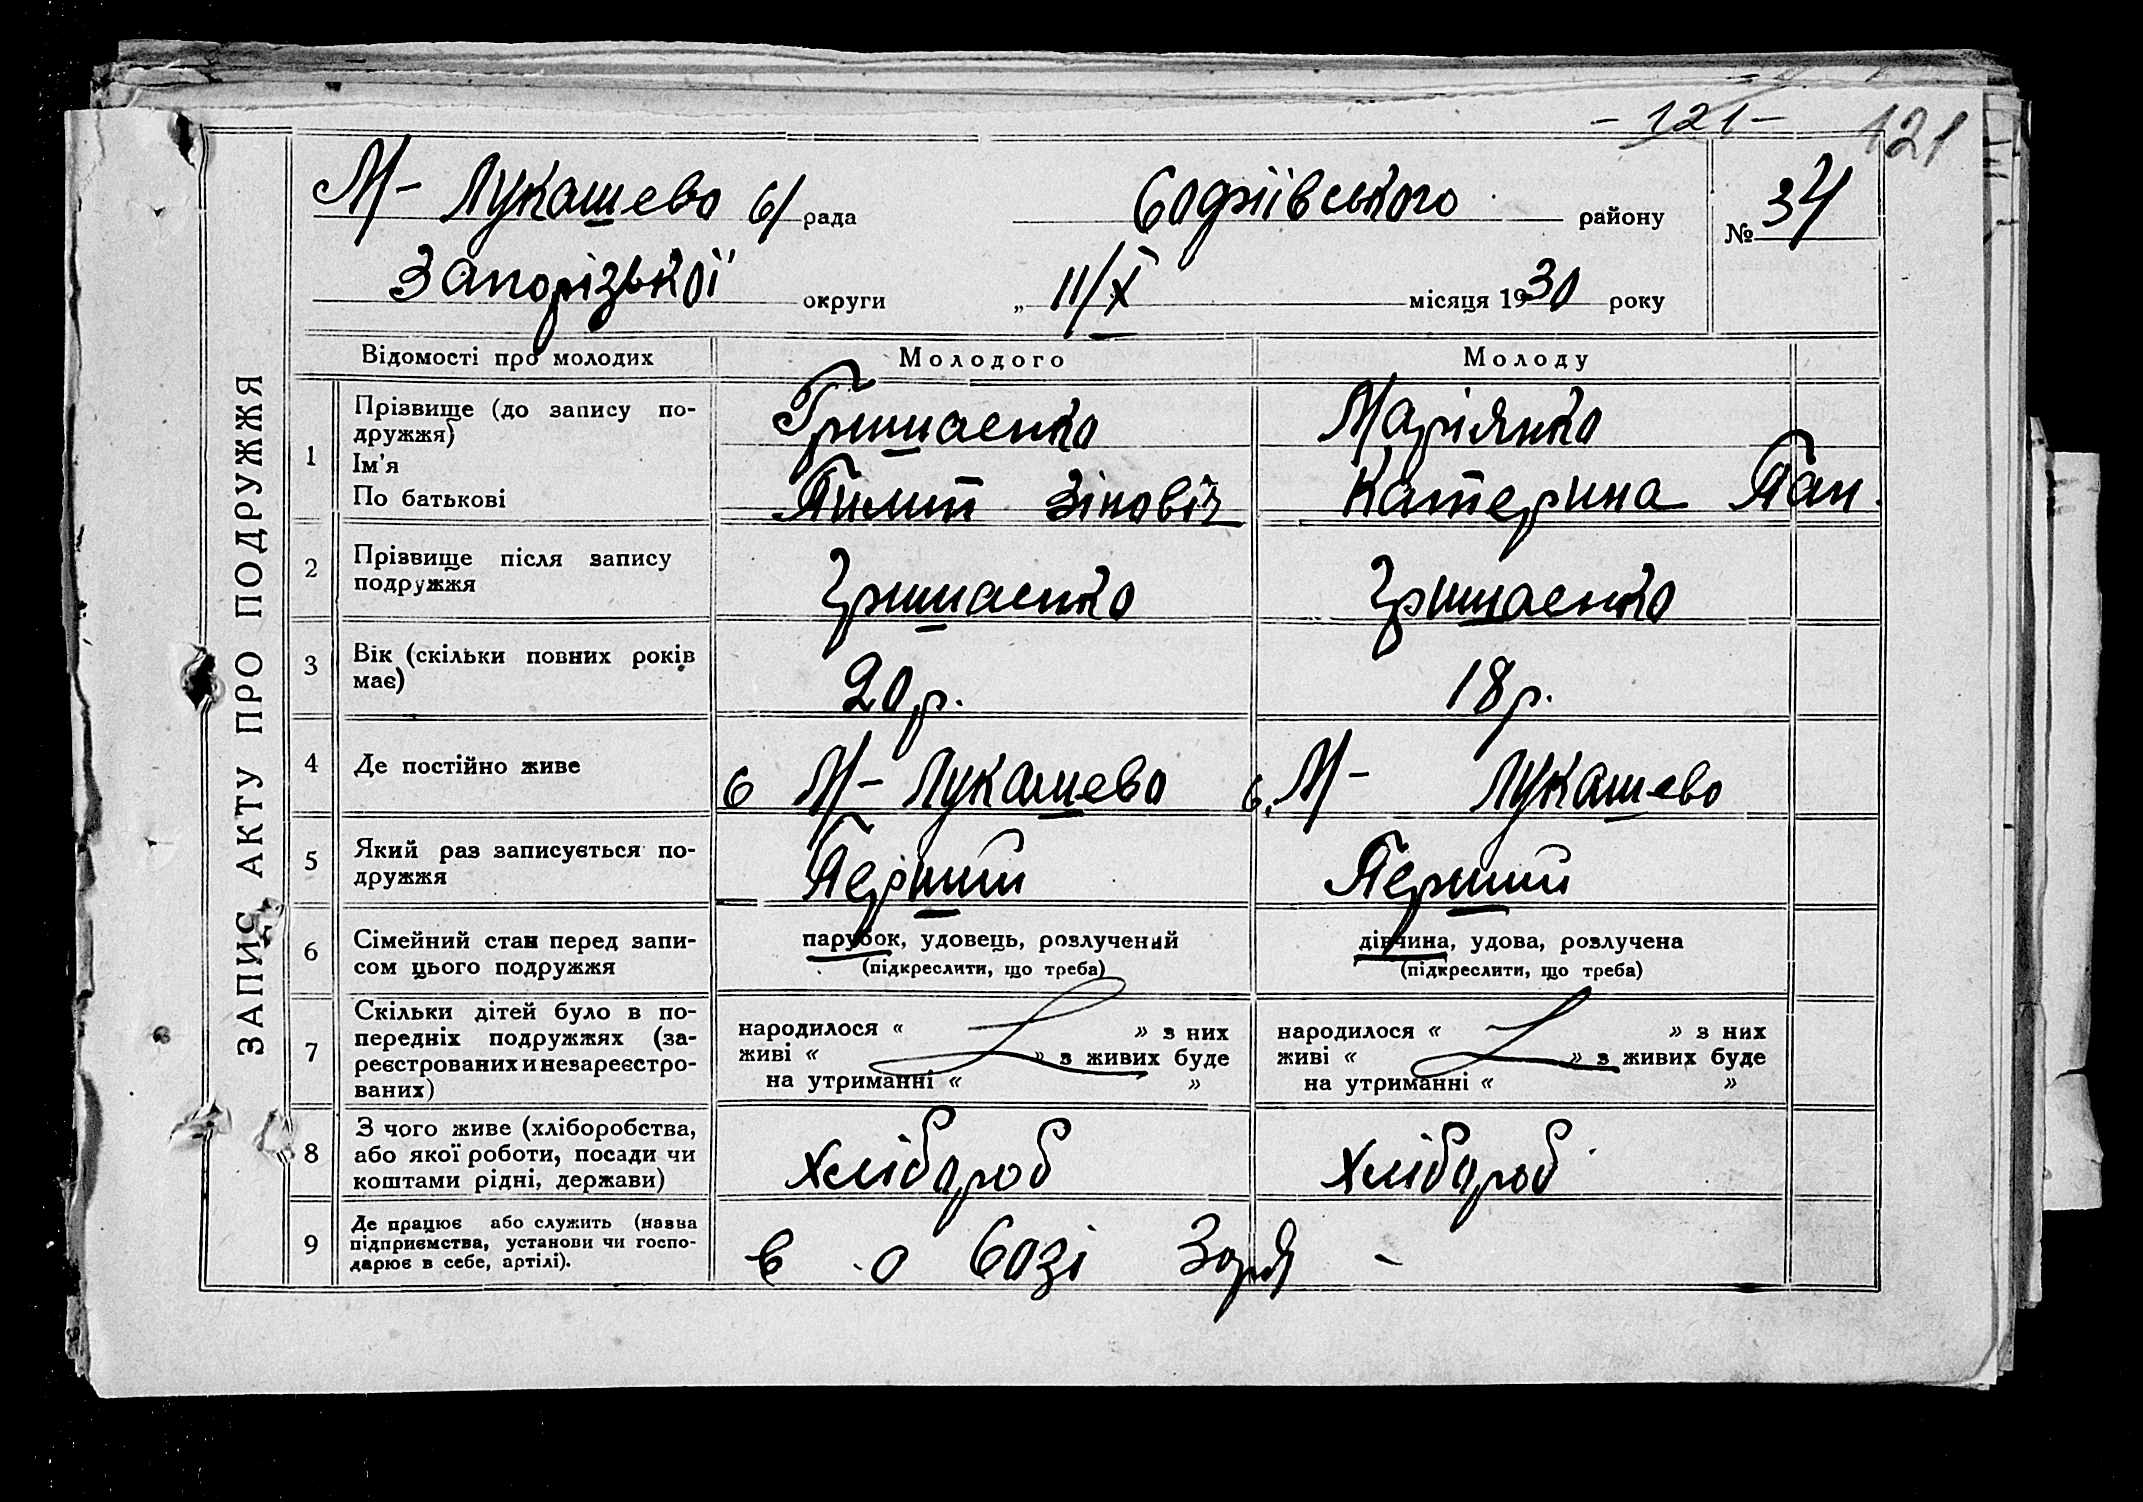 - 121 -
121
М- Лукашево с/ рада Софіївського району № 34
Запорізької округи „ 11/X місяця 1930 року
ЗАПИС АКТУ ПРО ПОДРУЖЖЯ
Відомості про молодих Молодого Молоду
1 Прізвище (до запису по-
дружжя) Гришаенко Маріянко
Ім'я
По батькові Пилип Зіновіч Катерина Пан.
2 Прізвище після запису
подружжя Гришаенко Гришаенко
3 Вік (скільки повних років
має) 20 р. 18 р.
4 Де постійно живе с М- Лукашево с. М- Лукашево
5 Який раз записується по-
дружжя Перший Перший
6 Сімейний стан перед запи-
сом цього подружжя
парубок, удовець, розлучений
(підкреслити, що треба)
дівчина, удова, розлучена
(підкреслити, що треба)
7 Скільки дітей було в по-
передніх подружжях (за-
реєстрованих и незареєстро-
ваних)
народилося « » з них
живі « » з живих буде
на утриманні « »
народилося « » з них
живі « » з живих буде
на утриманні « »
8 З чого живе (хліборобства,
або якої роботи, посади чи
коштами рідні, держави)
хлібороб хлібороб
9 Де працює або служить (назва
підприємства, установи чи госпо-
дарює в себе, артілі).
в с Созі Зоря -